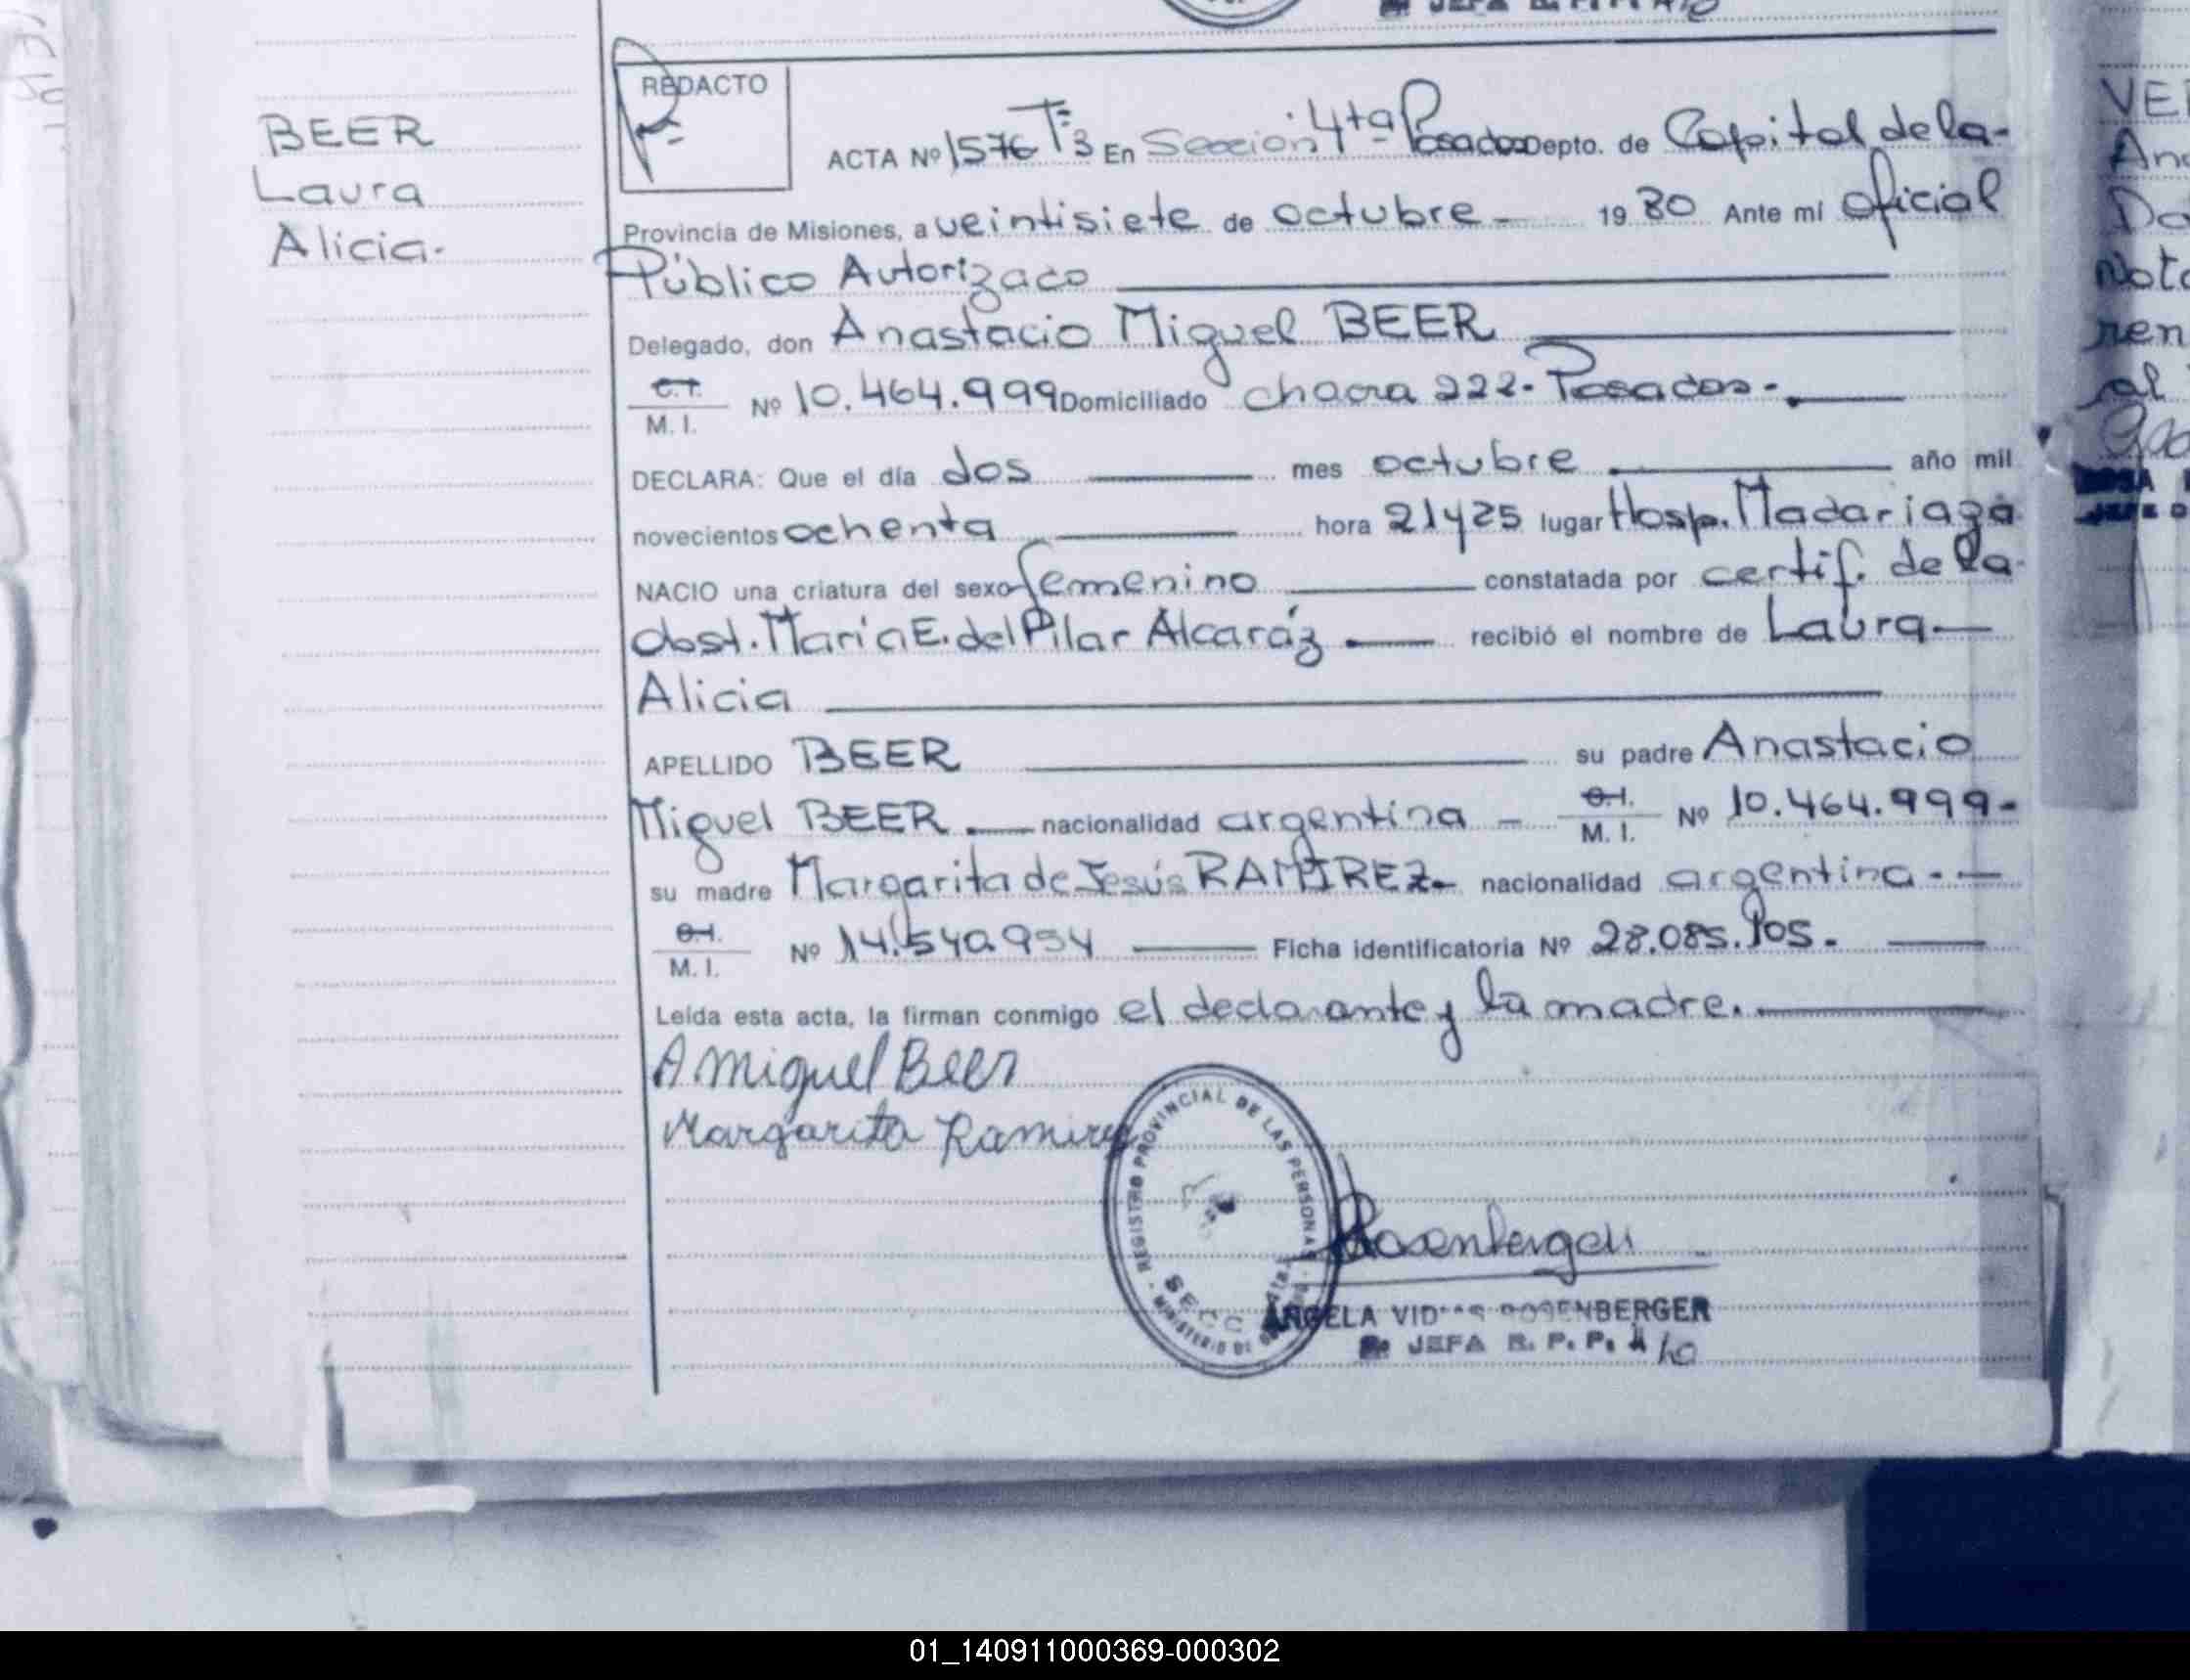 JEFA R. P. P.
REDACTO
BEER
Laura
Alicia.
ACTA Nº 1576 Tº 3 En Sección 4ta Posadas Depto. de Capital de la-
Provincia de Misiones, a veintisiete de octubre - 19 80 Ante mí oficial
Público Autorizado
Delegado, don Anastacio Miguel BEER
C.I.
M. I. Nº 10.464.999 Domiciliado chacra 222- Posadas-.
DECLARA: Que el día dos mes octubre año mil
novecientos ochenta hora 21y25 lugar Hosp. Madariaga
NACIO una criatura del sexo femenino constatada por certif. de la
obst. María E. del Pilar Alcaráz recibió el nombre de Laura
Alicia
APELLIDO BEER su padre Anastacio
Miguel BEER. nacionalidad argentina - C.I.
M. I. Nº 10.464.999-
su madre Margarita de Jesús RAMIREZ- nacionalidad argentina.-
C.I.
M. I. Nº 14.540.954 Ficha identificatoria Nº 28.085.Pos.
Leída esta acta, la firman conmigo el declarante y la madre.
A Miguel Beer
Margarita Ramirez
REGISTRO PROVINCIAL DE LAS PERSONAS
MINISTERIO DE
SECC 4ta.
Rosenberger
ANGELA ROSENBERGER
JEFA R. P. P.
VE
An
Not
ren
al
01_140911000369-000302